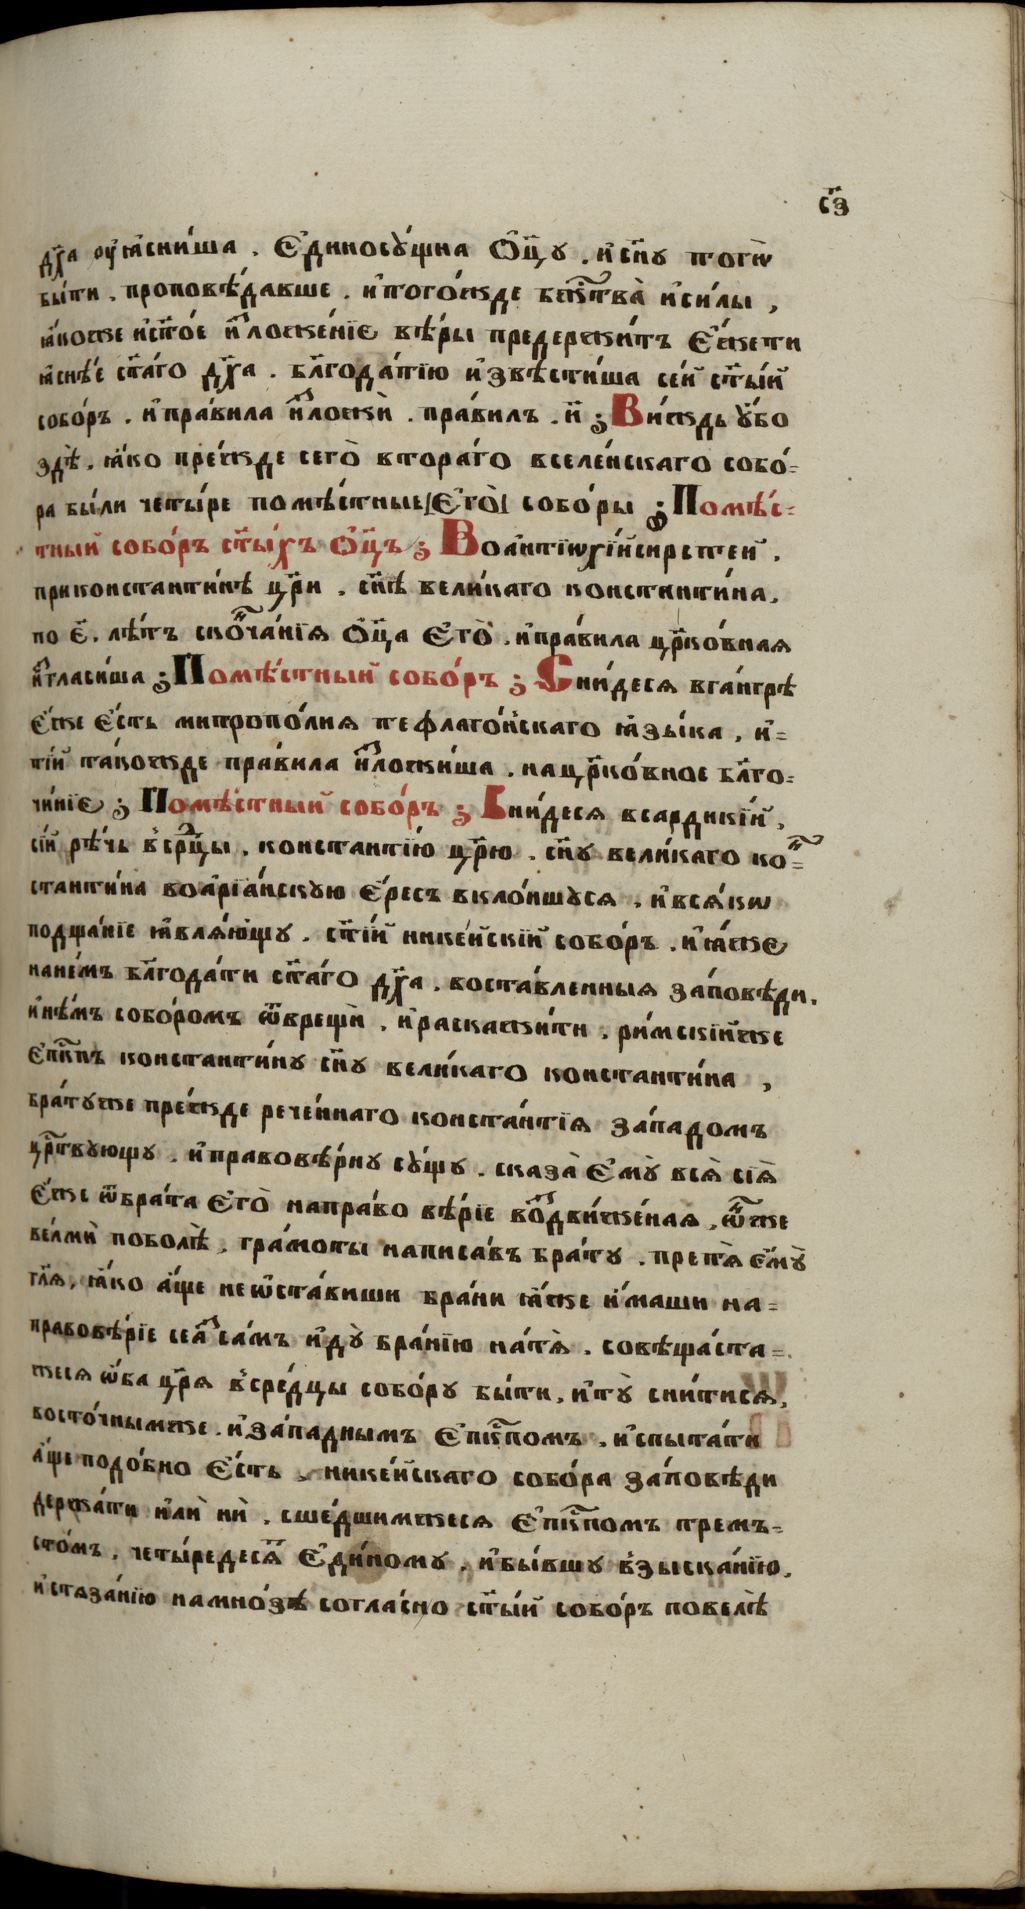 с҃з
дх҃а оу҆ꙗсни́ша . Є҆диносꙋ́щна Ѻ҆ц҃ꙋ . и҆сн҃ꙋ тогѡ̀
бы́ти . проповѣ́давше . и҆того́жде бж҃ства̀ и҆си́лы ,
ꙗ҆́коже и҆сто́е и҆зложе́нїе вѣ́ры предержи́тъ Є҆́жети
ꙗснѣ́е ст҃а́го дх҃а . бл҃года́тїю и҆звѣсти́ша се́й ст҃ы́й
собо́ръ . и҆пра́вила и҆зложѝ . пра́вилъ . и҃ ; Ви́ждь ᲂу҆́бо
здѣ̀ . ꙗ҆́ко пре́жде сего̀ втора́го вселе́нскаго собо́-
ра бы́ли четы́ре помѣ́стные Є҆го̀ собо́ры ; Помѣ́с-
тный собо́ръ ст҃ы́хъ Ѻ҆ц҃ъ ; Воа҆нтїѡхі́йсирстей .
приконстантинѣ цр҃и . сн҃ѣ вели́каго констнти́на .
по є҃ . лѣ́тъ сконча́нїѧ Ѻ҆ц҃а Є҆го̀ . и҆пра́вила цр҃ко́внаѧ
и҆згласи́ша ; Помѣ́стный собо́ръ ; Сни́десѧ вга́нгрѣ
Є҆́же Є҆́сть митропо́лиѧ пефлаго́нскаго ꙗ҆зы́ка , и҆-
ті́й та́кожде пра́вила и҆зложи́ша . нацр҃ко́вное бл҃го-
чи́нїе ; Помѣ́стный собо́ръ ; Сни́десѧ всардикі́й ,
сі́й рѣ́чь в҆срдцы . константі́ю цр҃ю . сн҃ꙋ вели́каго ко-
стантина воа҆рїа́нскꙋю Є҆́ресь вкло́ншꙋсѧ . и҆всѧ́кѡ
подща́нїе ꙗ҆влѧ́ющꙋ . ст҃і́й нике́йскїй собо́ръ . и҆ꙗ҆́же
нане́мъ бл҃года́ти ст҃а́го дх҃а . воста́вленныѧ за́повѣди .
и҆нѣ́мъ собо́ромъ ѿврещѝ . и҆раскази́ти . ри́мскїйже
Є҆пк҃пъ константи́нꙋ сн҃ꙋ вели́каго константи́на ,
бра́тꙋже пре́жде рече́ннаго конста́нтїѧ за́падомъ
цр҃твꙋющꙋ . и҆правовѣ́рнꙋ сꙋ́щꙋ . сказа̀ Є҆мꙋ̀ всѧ̀ сїѧ̀
Є҆́же ѿбра́та Є҆го̀ направо вѣ́рїе воздви́женаѧ , ѿнꙋже
велмѝ поболѣ̀ , гра́моты написа́въ бра́тꙋ . претѧ̀ є҆мꙋ̀
гл҃ѧ , ꙗ҆́ко а҆́ще неѡ҆ста́виши бра́ни ꙗ҆́же и҆́маши на-
правовѣ́рїе сеа҆зса́мъ и҆дꙋ̀ бра́нїю натѧ̀ . совѣща́ста-
жесѧ ѻ҆́ба цр҃ѧ в҆сре́дцы собо́рꙋ бы́ти , и҆тꙋ̀ сни́тисѧ ,
восто́чнымже . и҆за́паднымъ Є҆пк҃помъ . и҆спыта́ти
а҆́ще подо́бно Є҆́сть , нике́йскаго собо́ра за́повѣди
держа́ти и҆лѝ нѝ . сше́дшимжесѧ Є҆пк҃помъ тремъ-
сто́мъ . четы́редесѧт Є҆ди́номꙋ . и҆бы́вшꙋ в҆зыска́нїю .
и҆стѧза́нїю намно́зѣ согла́сно ст҃ы́й собо́ръ повелѣ̀